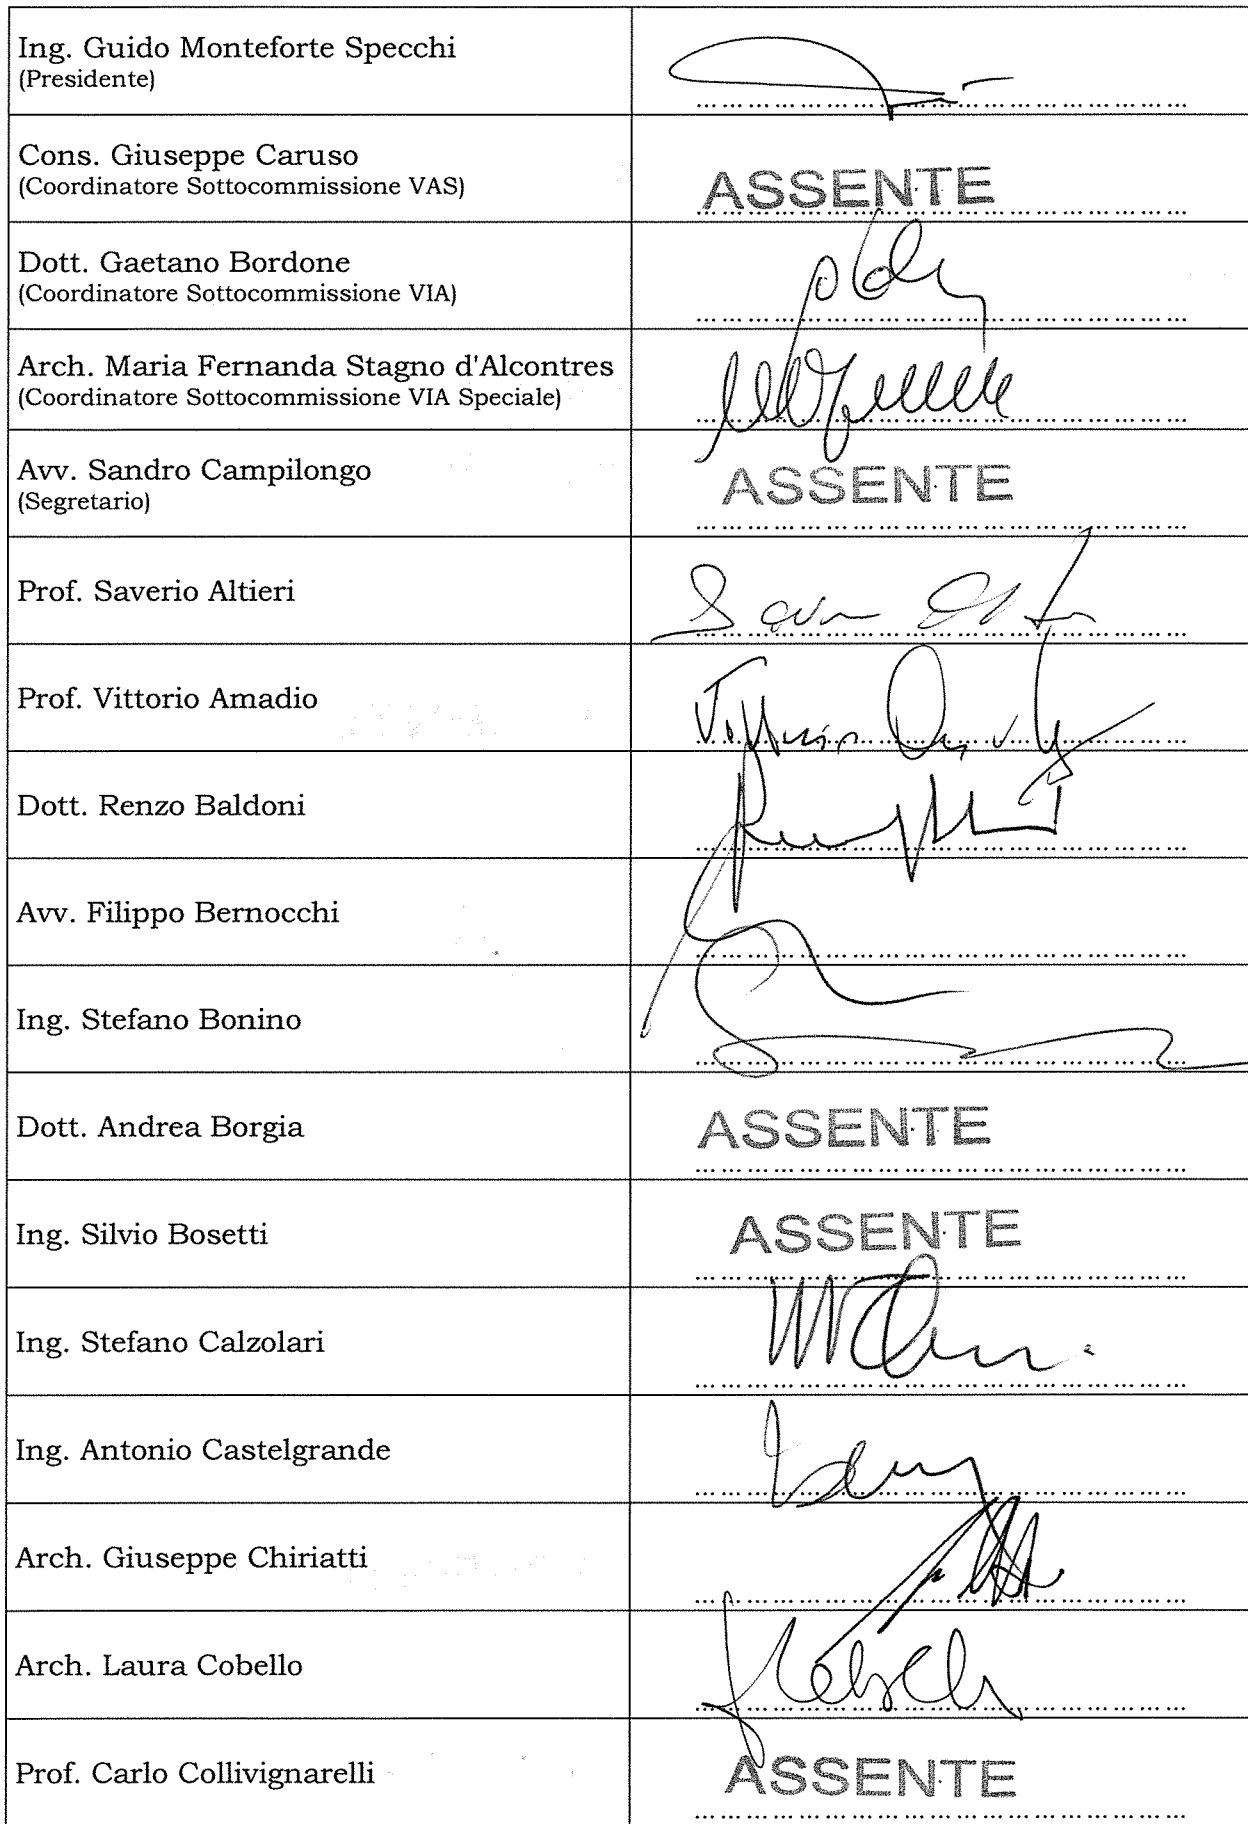 Ing. Guido Monteforte Specchi
(Presidente)
Cons. Giuseppe Caruso
(Coordinatore Sottocommissione VAS)
ASSENTE
Dott. Gaetano Bordone
(Coordinatore Sottocommissione VIA)
Arch. Maria Fernanda Stagno d'Alcontres
(Coordinatore Sottocommissione VIA Speciale)
Avv. Sandro Campilongo
(Segretario)
ASSENTE
Prof. Saverio Altieri
Prof. Vittorio Amadio
Dott. Renzo Baldoni
Avv. Filippo Bernocchi
Ing. Stefano Bonino
Dott. Andrea Borgia
ASSENTE
Ing. Silvio Bosetti
ASSENTE
Ing. Stefano Calzolari
Ing. Antonio Castelgrande
Arch. Giuseppe Chiriatti
Arch. Laura Cobello
Prof. Carlo Collivignarelli
ASSENTE